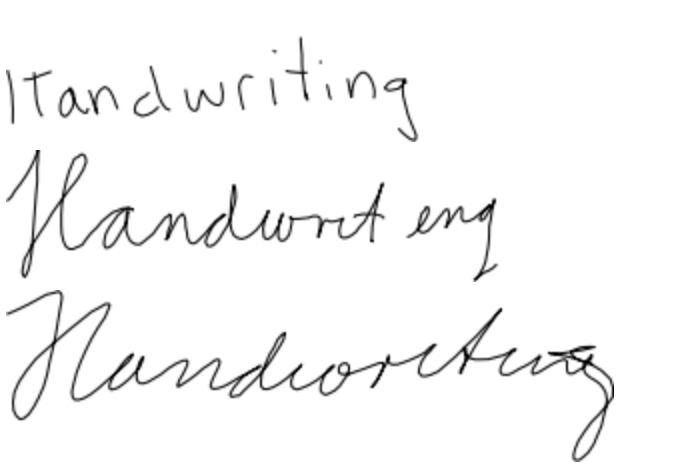 Handwriting
Handwriting
Handwriting